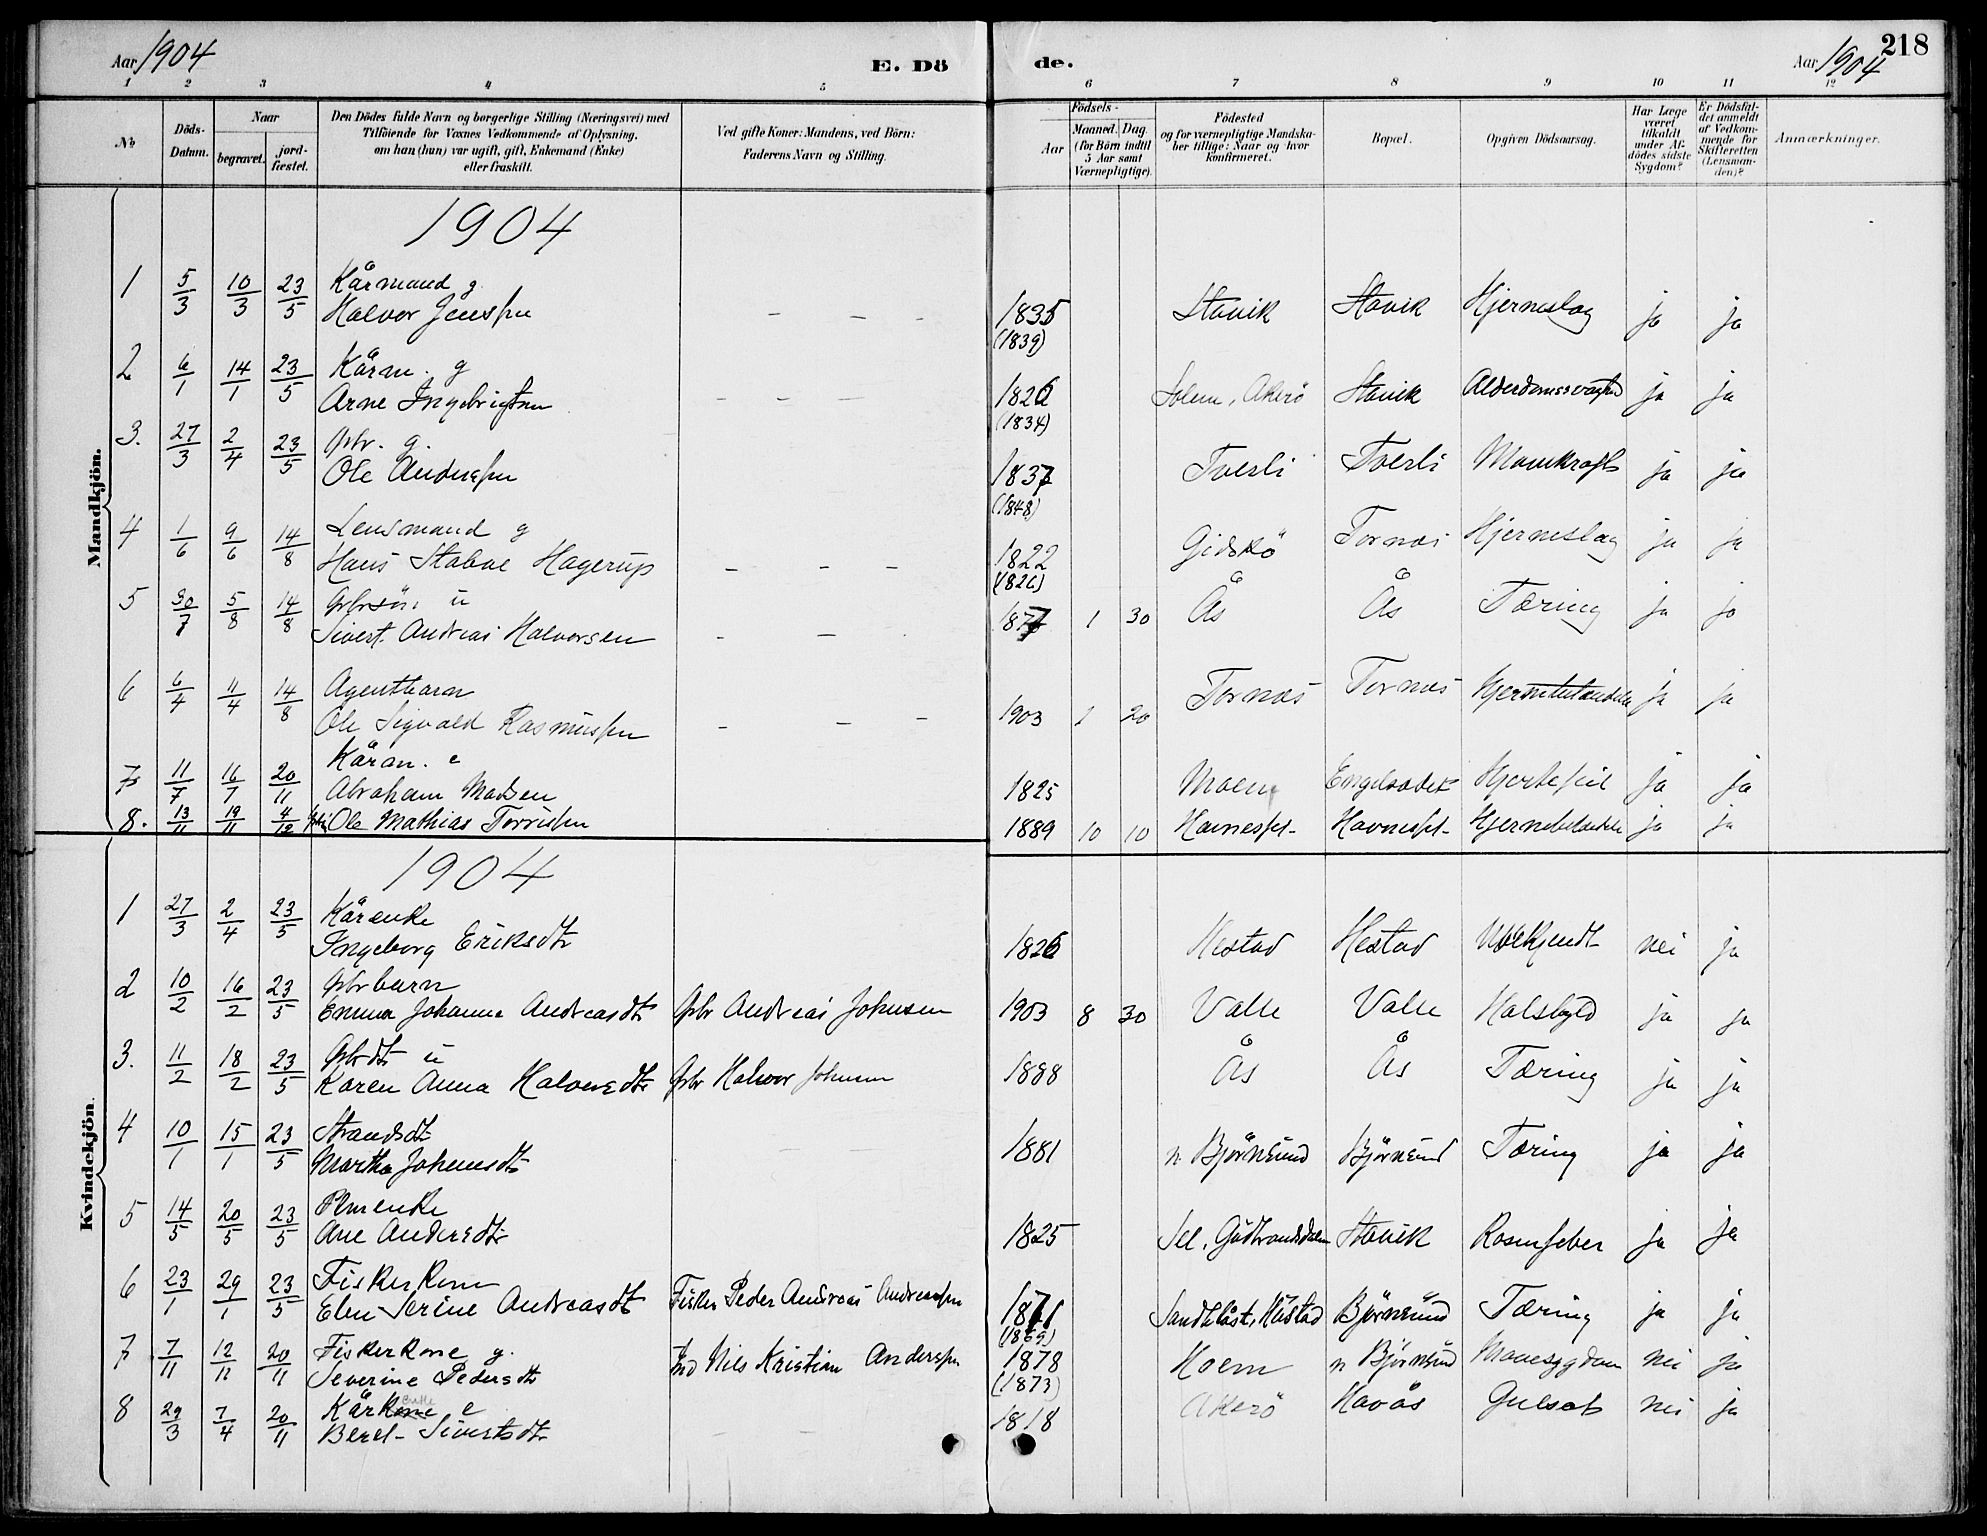 218
Aar 1904
E. Dö
de.
Aar 1904
1 2 3 4 5 6 7 8 9 10 11 12
No
Döds-Datum.
Naar
begravet.
jord-fæstet.
Den Dödes fulde Navn og borgerlige Stilling (Næringsvei) med
Tilföiende for Voxnes Vedkommende af Oplysning,
om han (hun) var ugift, gift, Enkemand (Enke)
eller fraskilt.
Ved gifte Koner: Mandens, ved Börn:
Faderens Navn og Stilling.
Födsels-
Aar
Maaned. Dag.
(for Börn indtil
5 Aar samt
Værnepligtige).
Födested
og for værnepligtige Mandska-
ber tillige: Naar og hvor
konfirmeret.
Bopæl.
Opgiven Dödsaarsag.
Har Læge
været
tilkaldt
under Af-
dödes sidste
Sygdom?
Er Dödsfal-
det anmeldt
af Vedkom-
mende for
Skifteretten
(Lensman-
den)?
Anmærkninger.
Mandkjön.
1904
1 5/3 10/3 23/5 Kårmand g
Halvor Jenssen – – – 1835 Stavik Stavik Hjerneslag ja ja
(1839)
2 6/1 14/1 23/5 Kårm. g
Arne Ingebrigtsen – – – 1826 Solem, Akerö Stavik Alderdomssvaghed ja ja
(1834)
3. 27/3 2/4 23/5 Gbr. g.
Ole Anderssen 1837 Tverli Tverli Mavekræft ja ja
(1848)
4 1/6 9/6 14/8 Lensmand g
Hans Staboe Hagerup – – – 1822 Gidskö Tornæs Hjerneslag ja ja
(1826)
5 30/7 5/8 14/8 Gbrsön u
Sivert Andreas Halvorsen – – 1877 1 30 Ås Ås Tæring ja ja
6 6/4 11/4 14/8 Agentbarn
Ole Sigvald Rasmussen – – – 1903 1 20 Tornæs Tornæs ja ja
7 11/7 16/7 20/11 Kårm. e
Abraham Madsen 1825 Moen Hjertefeil ja ja
8. 13/11 19/11 4/12 Ole Mathias Torrissen 1889 10 10 ja ja
Kvindekjön.
1904
1 27/3 2/4 23/5 Kårenke
Ingeborg Eriksdtr 1826 Hestad Hestad Ubekjendt nei ja
2 10/2 16/2 23/5 Gbrbarn
Emma Johanne Andreasdtr Gbr Andreas Johnsen 1903 8 30 Valle Valle Halsbyld ja ja
3. 11/2 18/2 23/5 Gbrdtr u
Karen Anna Halvorsdtr Gbr Halvor Johnsen 1888 Ås Ås Tæring ja ja
4 10/1 15/1 23/5 Strandsdtr
Martha Johansdtr – – 1881 n. Björnsund Björnsund Tæring ja ja
5 14/5 20/5 23/5
Ane Andersdtr 1825 Sel, Gudbrandsdalen Stavik Rosenfeber ja ja
6 23/1 29/1 23/5 Fiskerkone
Elen Serine Andreasdt Fisker Peder Andreas Andreassen 1871 Sandblåst, Hustad Björnsund Tæring ja ja
(1869)
7 7/11 12/11 20/11 Fiskerkone g.
Severine Pedersdtr Nils Kristian Anderssen 1878 Hoem n Björnsund Mavesygdom nei ja
(1873)
8 29/3 7/4 20/11 Kårkone e
Beret Sivertsdtr – 1818 Akerö Havås Gulsot nei ja